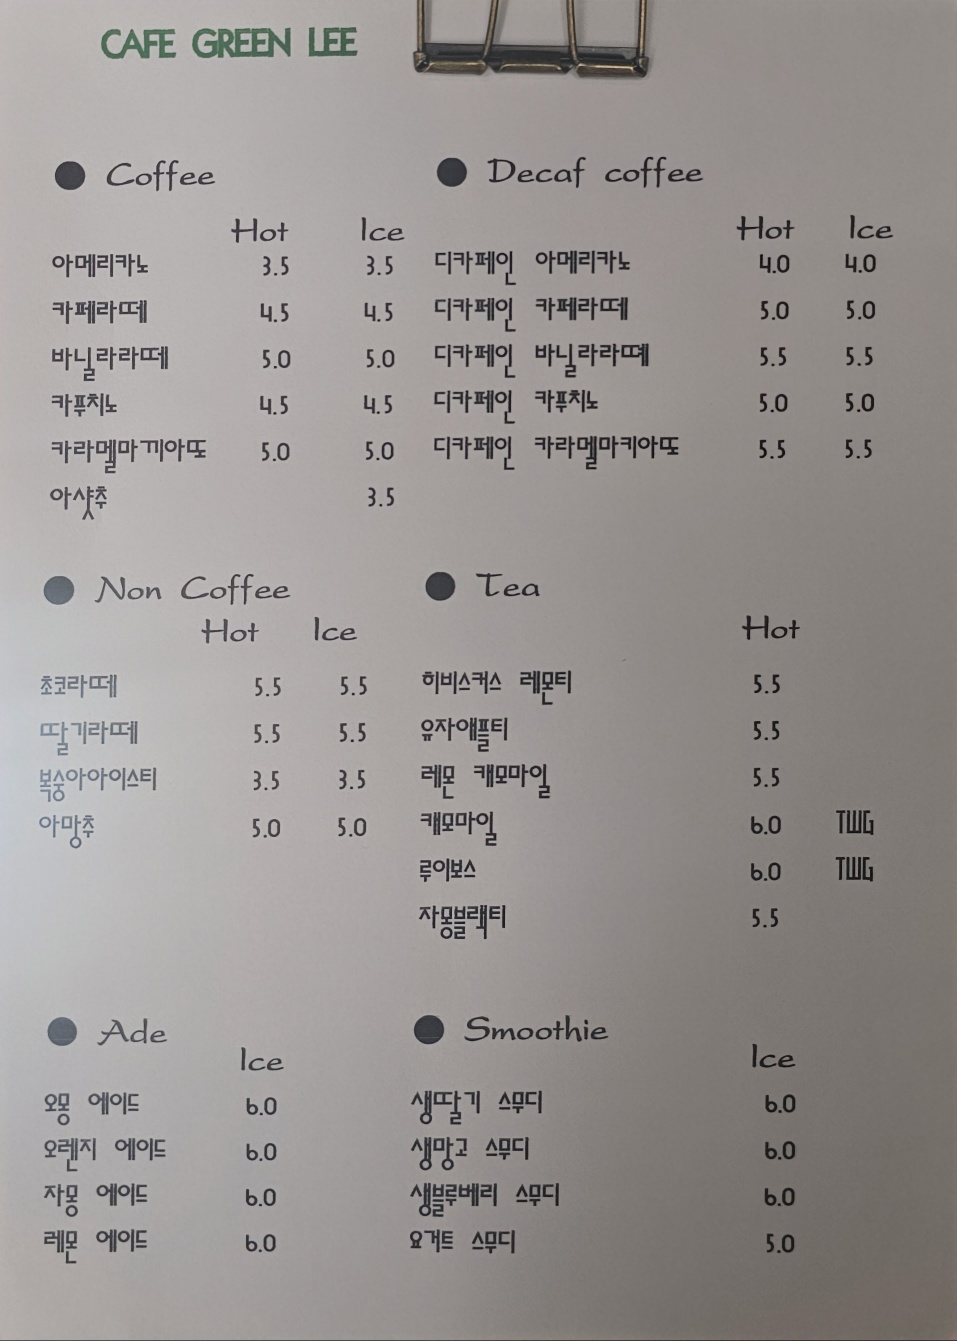 CAFE GREEN LEE
Coffee
Hot Ice
아메리카노 3.5 3.5
카페라떼 4.5 4.5
바닐라라떼 5.0 5.0
카푸치노 4.5 4.5
카라멜마끼아또 5.0 5.0
아샷추 3.5
Decaf coffee
Hot Ice
디카페인 아메리카노 4.0 4.0
디카페인 카페라떼 5.0 5.0
디카페인 바닐라라뗴 5.5 5.5
디카페인 카푸치노 5.0 5.0
디카페인 카라멜마키아또 5.5 5.5
Non Coffee
Hot Ice
초코라떼 5.5 5.5
딸기라떼 5.5 5.5
복숭아아이스티 3.5 3.5
아망추 5.0 5.0
Tea
Hot
히비스커스 레몬티 5.5
유자애플티 5.5
레몬 캐모마일 5.5
캐모마일 6.0 TWG
루이보스 6.0 TWG
자몽블랙티 5.5
Ade
Ice
오몽 에이드 6.0
오렌지 에이드 6.0
자몽 에이드 6.0
레몬 에이드 6.0
Smoothie
Ice
생딸기 스무디 6.0
생망고 스무디 6.0
생블루베리 스무디 6.0
요거트 스무디 5.0